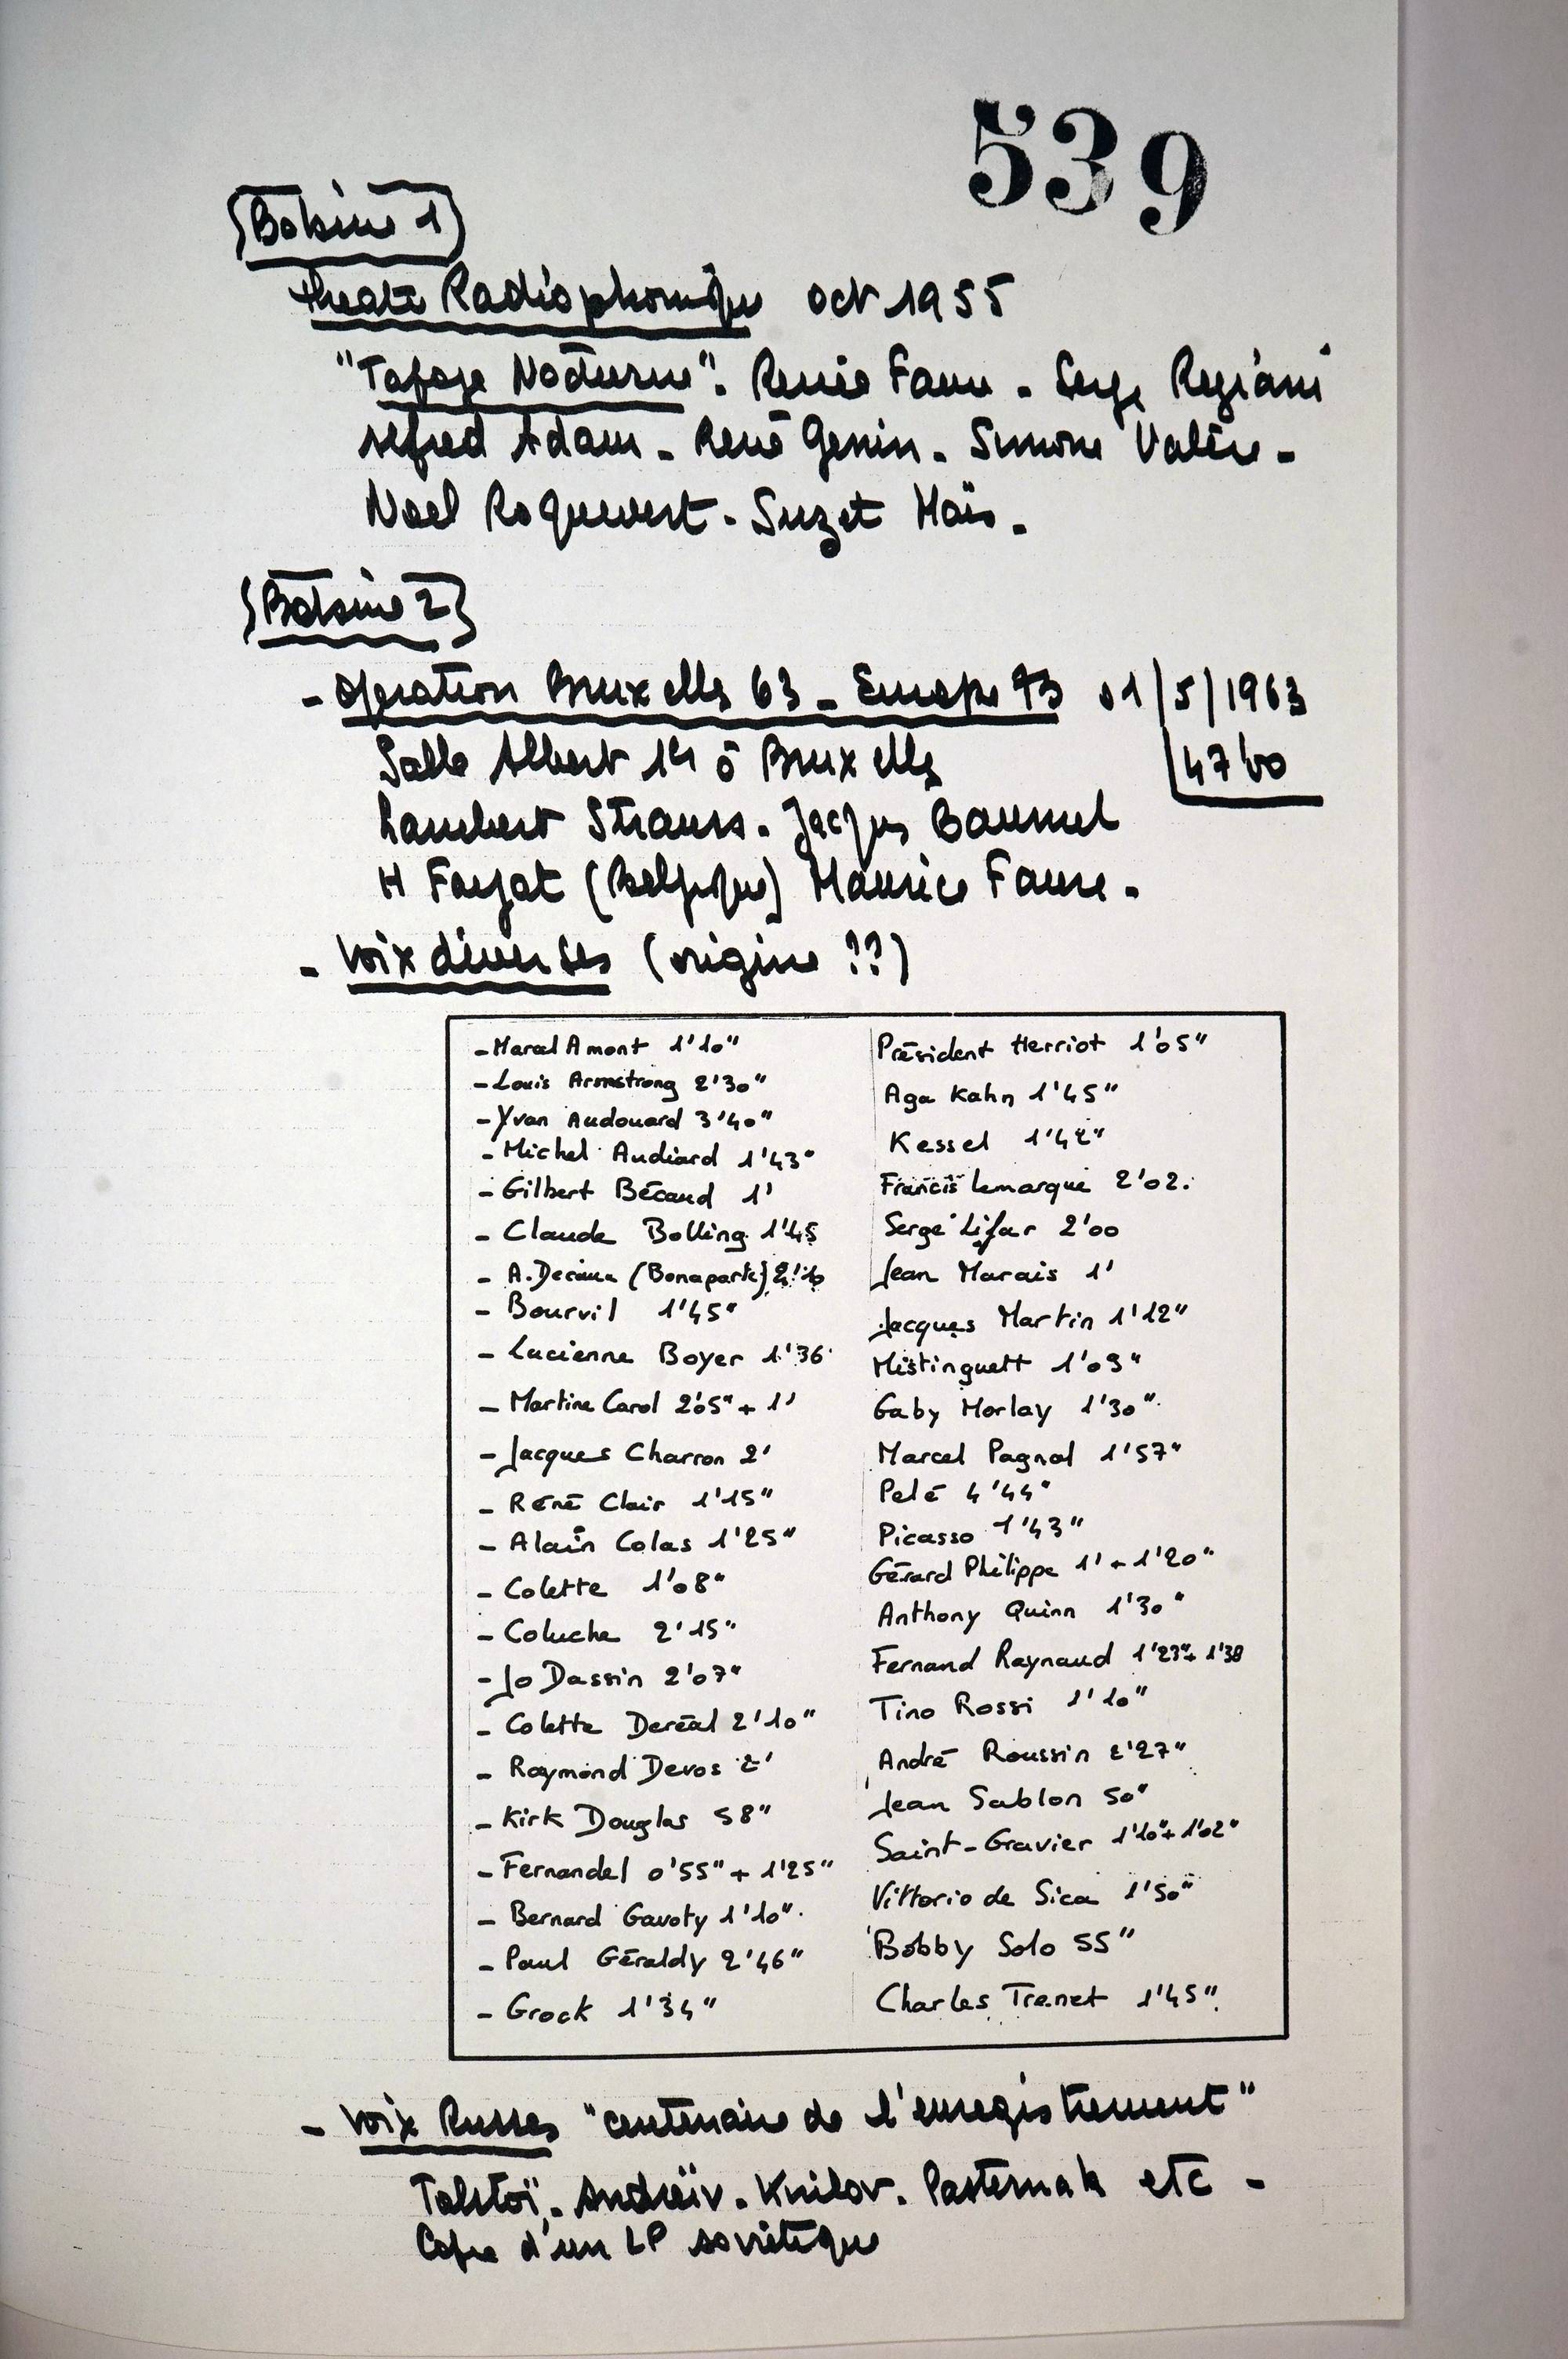 539
{Bobine 1}
Theatre Radiophonique oct 1955
"Tapage Nocturne". Renée Faure - Serge Regiani
Alfred Adam - René Genin - Simone Valère -
Noel Roquevert - Suzet Maïs.
{Bobine 2}
- Operation Bruxelles 63 - Europe 73 01/5/1963
Salle Albert 1er à Bruxelles 47'00
Lambert Strauss. Jacques Baumel
H Fayat (Belgique) Maurice Faure.
- Voix diverses (origine ??)
- Marcel Amont 1'10"
- Louis Armstrong 2'30"
- Yvan Audouard 3'40"
- Michel Audiard 1'43"
- Gilbert Bécaud 1'
- Claude Bolling 1'45
- A. Decaux (Bonaparte)
- Bourvil 1'45"
- Lucienne Boyer 1'36
- Martine Carol 2'05" + 1'
- Jacques Charron 2'
- René Clair 1'15"
- Alain Colas 1'25"
- Colette 1'08"
- Coluche 2'15"
- Jo Dassin 2'07"
- Colette Deréal 2'10"
- Raymond Devos 2'
- Kirk Douglas 58"
- Fernandel 0'55" + 1'25"
- Bernard Gavoty 1'10"
- Paul Géraldy 2'46"
- Grock 1'34"
Président Herriot 1'05"
Aga Kahn 1'45"
Kessel 1'42"
Francis Lemarque 2'02.
Serge Lifar 2'00
Jean Marais 1'
Jacques Martin 1'12"
Mistinguett 1'09"
Gaby Morlay 1'30"
Marcel Pagnol 1'57"
Pelé 4'44"
Picasso 1'43"
Gérard Philippe 1' + 1'20"
Anthony Quinn 1'30"
Fernand Raynaud 1'23" + 1'38
Tino Rossi 1'10"
André Roussin 2'27"
Jean Sablon 50"
Saint-Gravier 1'10" + 1'02"
Vittorio de Sica 1'50"
Bobby Solo 55"
Charles Trenet 1'45"
- Voix Russes "centenaire de l'enregistrement"
Tolstoï. Andreïv. Krilov. Pasternak etc -
Copie d'un LP soviétique